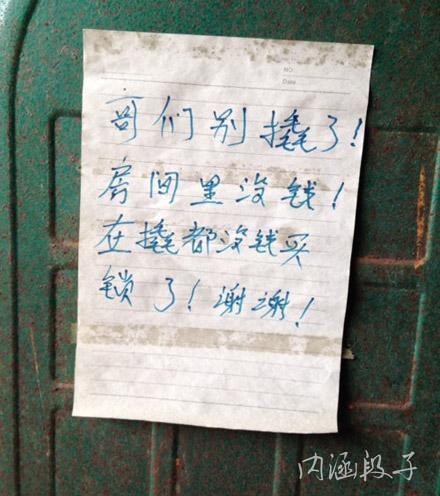 NO.
Date
哥们别撬了!
房间里没钱!
在撬都没钱买
锁了!谢谢!
内涵段子